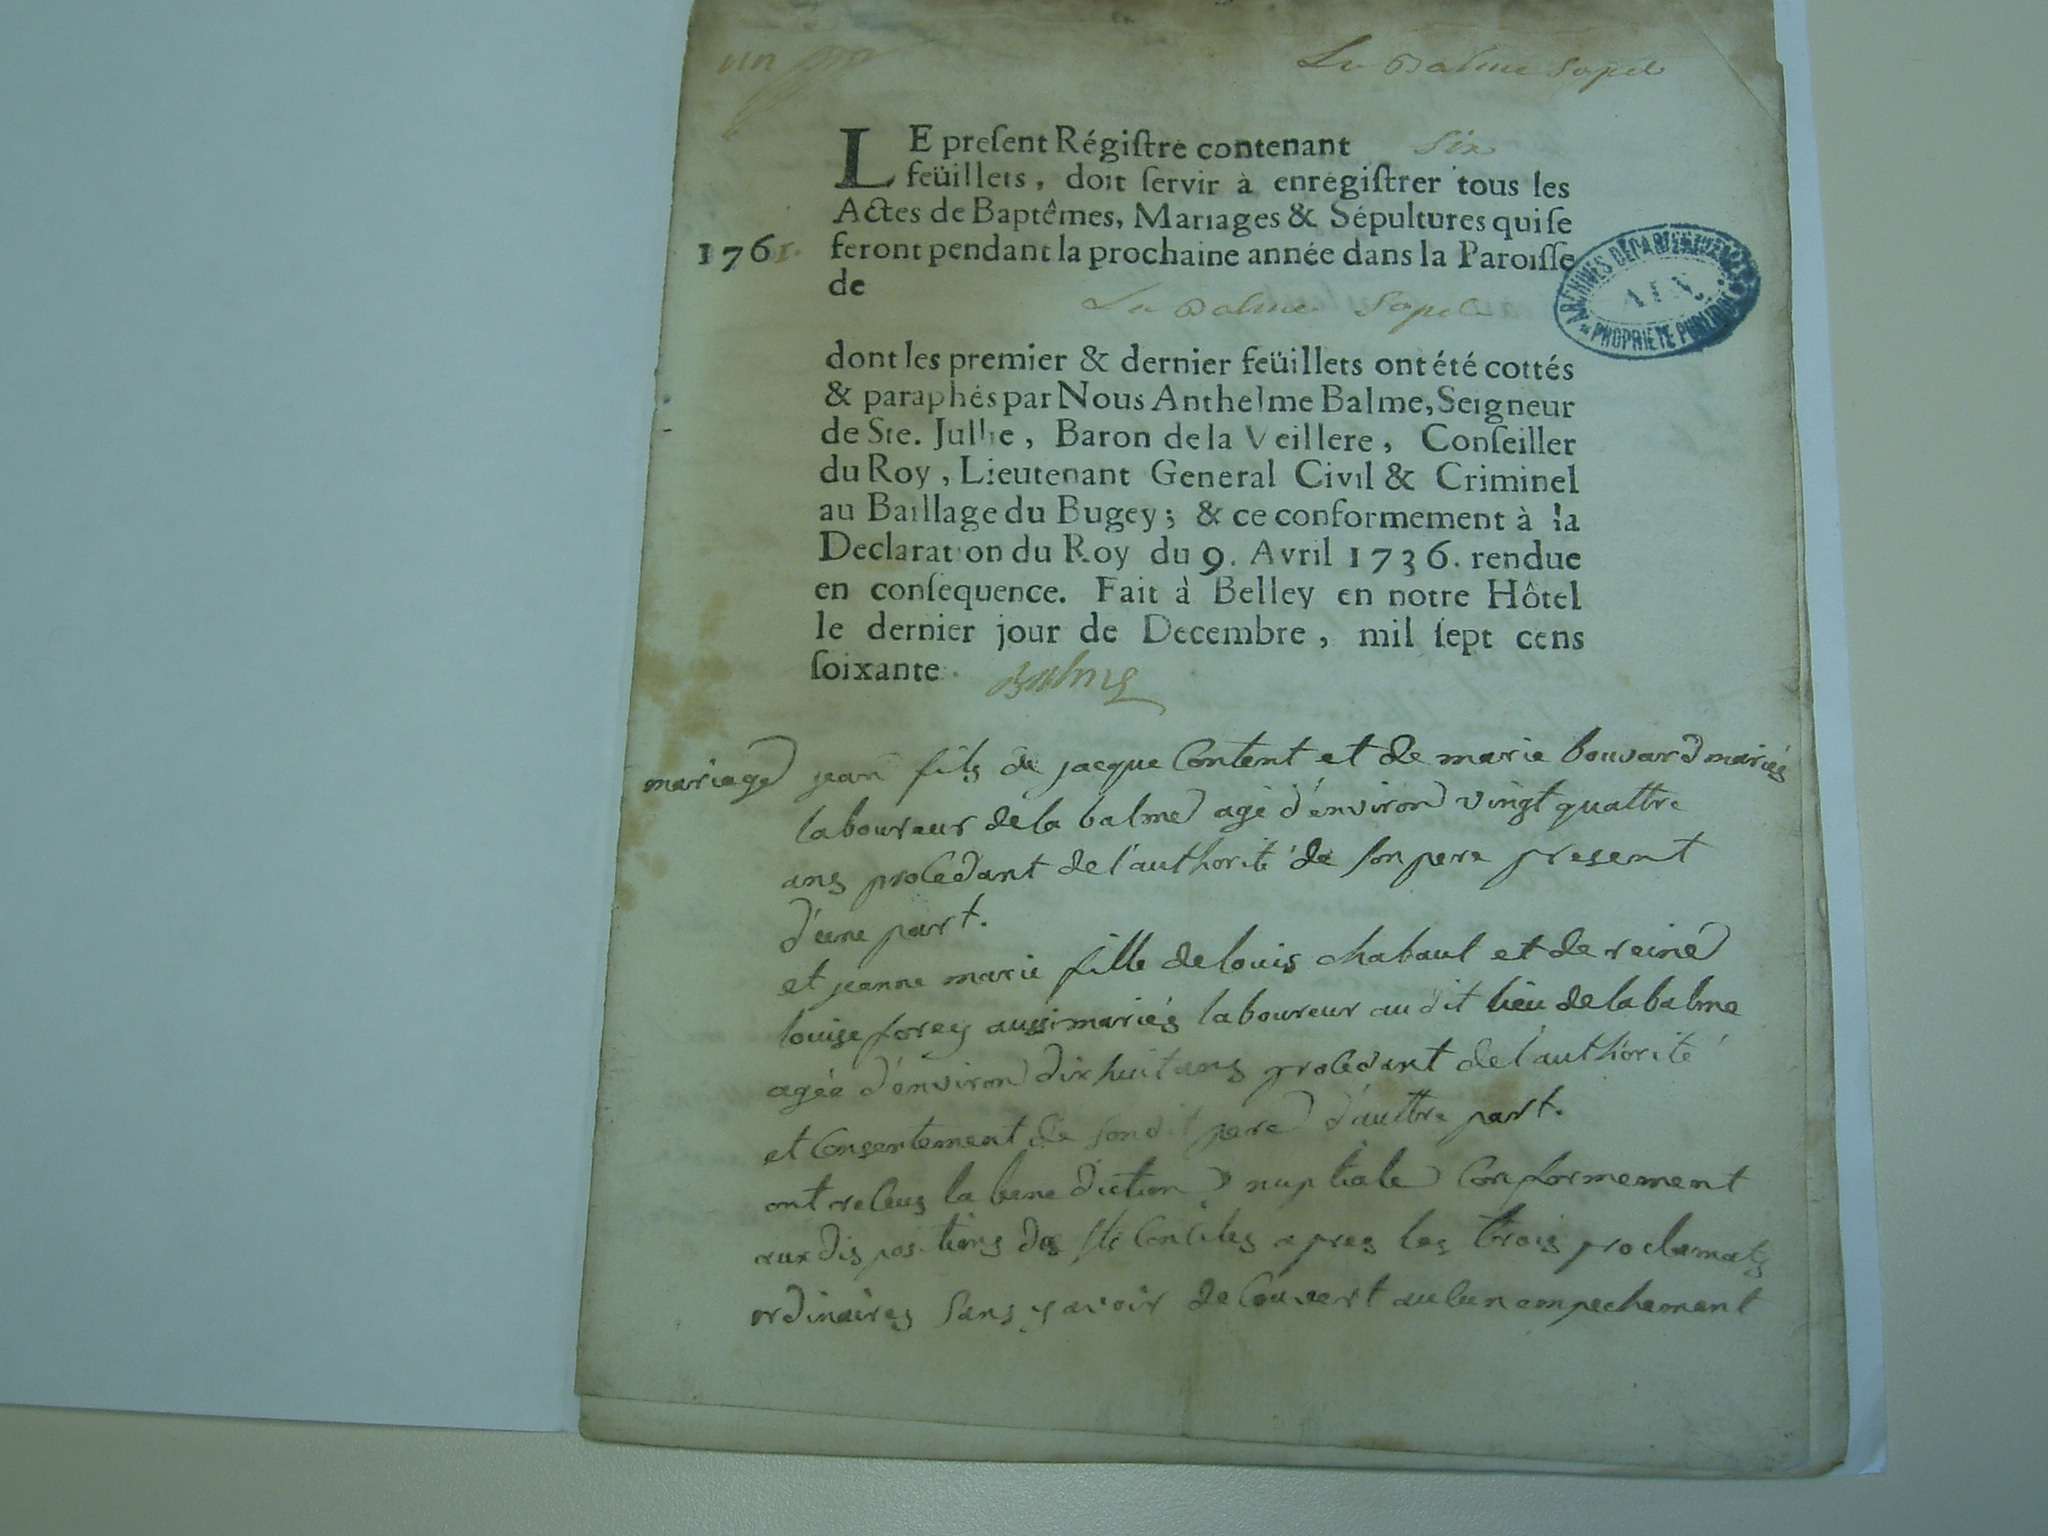 un
La Balme Sapel
LE preſent Régiſtre contenant six
feüillets, doit ſervir à enrégiſtrer tous les
Actes de Baptêmes, Mariages & Sépultures qui ſe
1761. feront pendant la prochaine année dans la Paroiſſe
de
La Balme Sapel
ARCHIVES DÉPARTEMENTALES
AIN
PROPRIÉTÉ PUBLIQUE
dont les premier & dernier feüillets ont été cottés
& paraphés par Nous Anthelme Balme, Seigneur
de Ste. Jullie, Baron de la Veillere, Conſeiller
du Roy, Lieutenant General Civil & Criminel
au Baillage du Bugey; & ce conformement à la
Declaration du Roy du 9. Avril 1736. rendue
en conſequence. Fait à Belley en notre Hôtel
le dernier jour de Decembre, mil ſept cens
ſoixante. Balme
mariage jean fils de jacque Content et de marie bouvard mariés
laboureur de la balme agé d'environ vingt quattre
ans procedant de l'authorité de son pere present
d'une part.
et jeanne marie fille de louis chabaul et de reine
louise forey aussi mariés laboureur au dit lieu de la balme
agée d'environ dix huit ans procedant de l'authorité
et Consentement de son dit pere d'aultre part.
ont receus la benediction nuptiale Conformement
aux dispositions des sts Conciles apres les trois proclamats
ordinaires sans y avoir decouvert aucun empechement